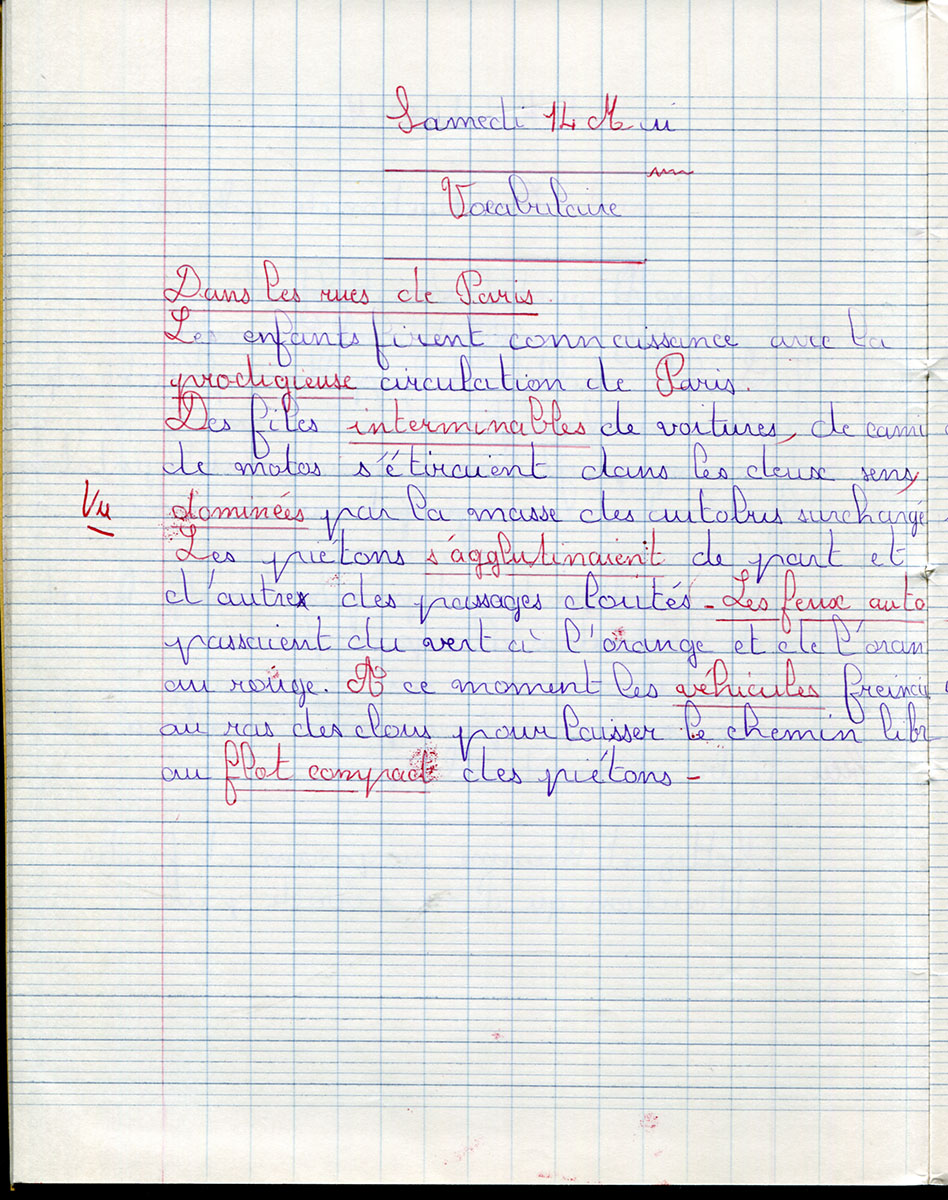 Samedi 14 Mai
Vocabulaire
Dans les rues de Paris.
Les enfants firent connaissance avec la
prodigieuse circulation de Paris.
Des files interminables de voitures, de cami
de motos s'étiraient dans les deux sens,
Vu
dominées par la masse des autobus surchargé
Les piétons s'agglutinaient de part et
d'autre des passages cloutés - Les feux auto
passaient du vert à l'orange et de l'oran
au rouge. A ce moment les véhicules freinai
au ras des clous pour laisser le chemin libr
au flot compact des piétons -